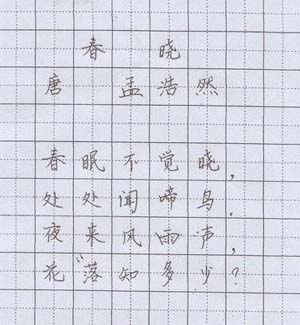 春晓
唐 孟浩然
春眠不觉晓,
处处闻啼鸟.
夜来风雨声,
花落知多少?